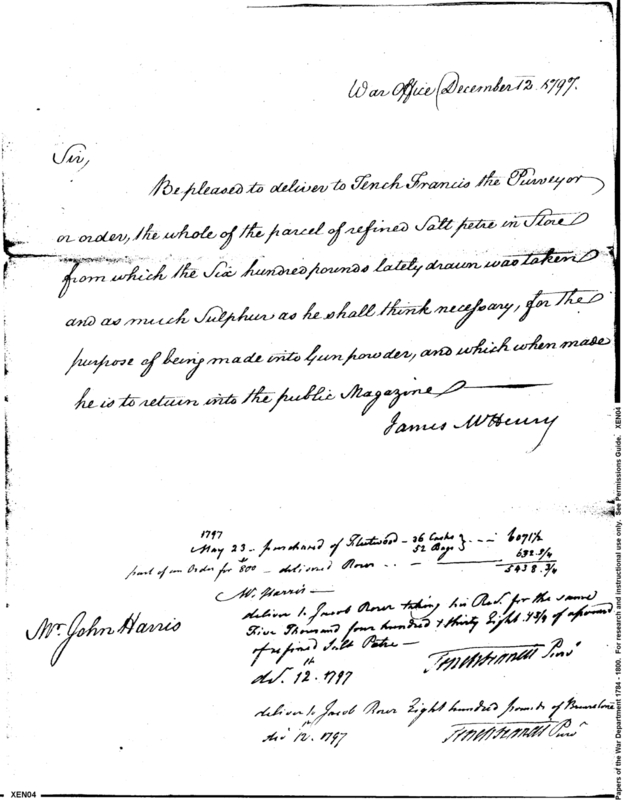 War Office December 12. 1797.
Sir,
Be pleased to deliver to Tench Francis the Purveyor
or order, the whole of the parcel of refined Salt petre in Store
from which the Six hundred pounds lately drawn was taken
and as much Sulphur as he shall think necessary, for the
purpose of being made into Gunpowder, and which when made
he is to return into the public Magazine
James McHenry
1797
May 23 - purchased of Fleetwood - 36 Casks
52 Bags
6071 1/2
part of an Order for 800 - delivered Rover -
632 3/4
5438. 3/4
Mr. Harris -
deliver to Jacob Rover taking his Rect. for the same
Five Thousand four hundred & thirty Eight 3/4 of a pound
of refined Salt Petre -
der. 12th. 1797
Tench Francis Purvr
Mr. John Harris
deliver to Jacob Rover Eight hundred pounds of Brimstone
der 12th. 1797
Tench Francis Purvr
XEN04
Papers of the War Department 1784 - 1800. For research and instructional use only. See Permissions Guide. XEN04